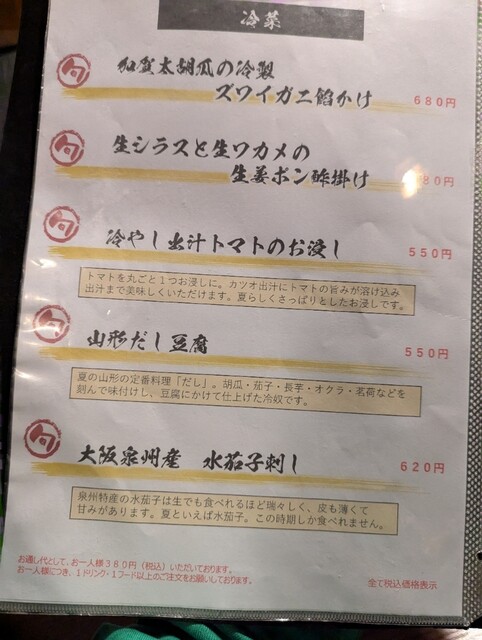 冷菜
旬
加賀太胡瓜の冷製
ズワイガニ餡かけ
680円
旬
生シラスと生ワカメの
生姜ポン酢掛け
80円
旬
冷やし出汁トマトのお浸し
550円
トマトを丸ごと1つお浸しに。カツオ出汁にトマトの旨みが溶け込み
出汁まで美味しくいただけます。夏らしくさっぱりとしたお浸しです。
旬
山形だし豆腐
550円
夏の山形の定番料理「だし」。胡瓜・茄子・長芋・オクラ・茗荷などを
刻んで味付けし、豆腐にかけて仕上げた冷奴です。
旬
大阪泉州産 水茄子刺し
620円
泉州特産の水茄子は生でも食べれるほど瑞々しく、皮も薄くて
甘みがあります。夏といえば水茄子。この時期しか食べれません。
お通し代として、お一人様380円（税込）いただいております。
お一人様につき、1ドリンク・1フード以上のご注文をお願いしております。
全て税込価格表示